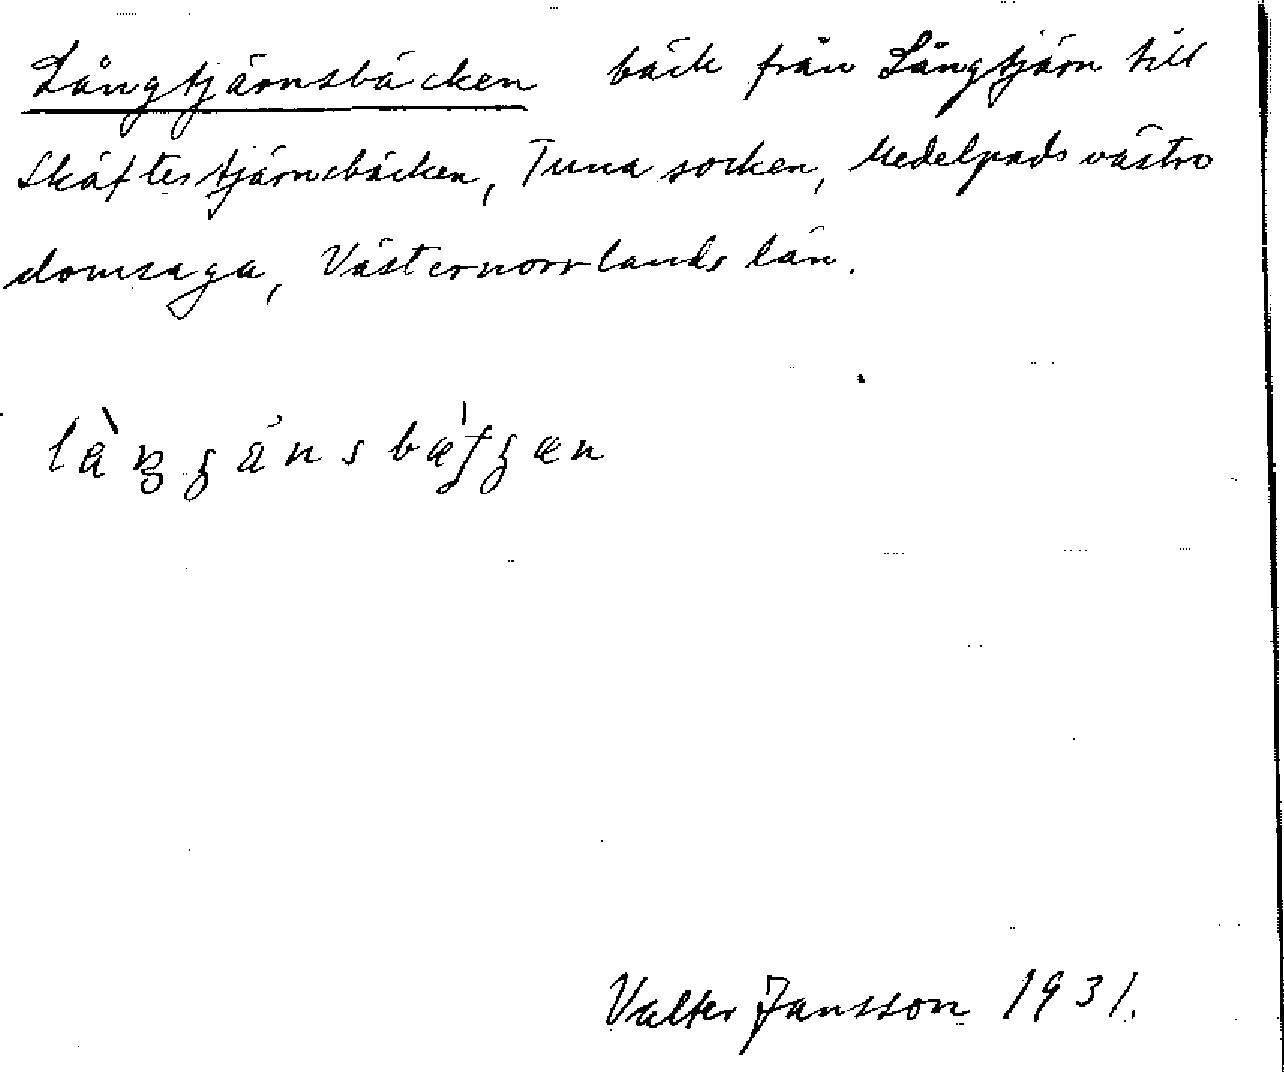 Långtjärnsbäcken bäck från Långtjärn till
Skäftestjärnsbäcken, Tuna socken, Medelpads västra
domsaga, Västernorrlands län.
Valter Jansson 1931.